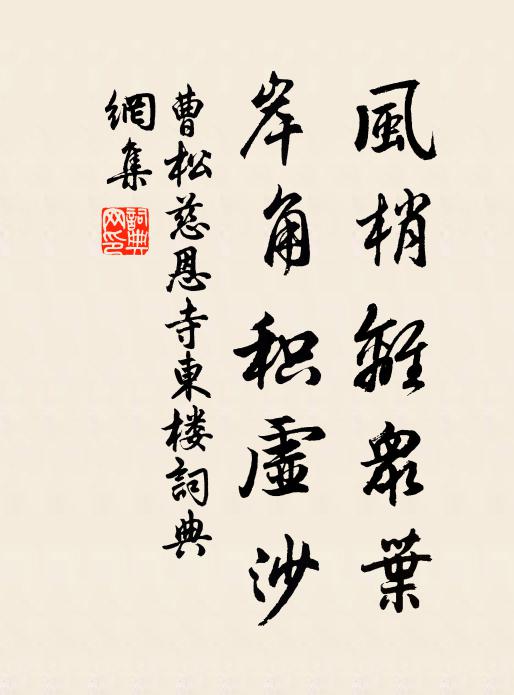 風梢離衆葉
岸角积虛沙
曹松慈恩寺東楼詞典
網集
詞典
网印